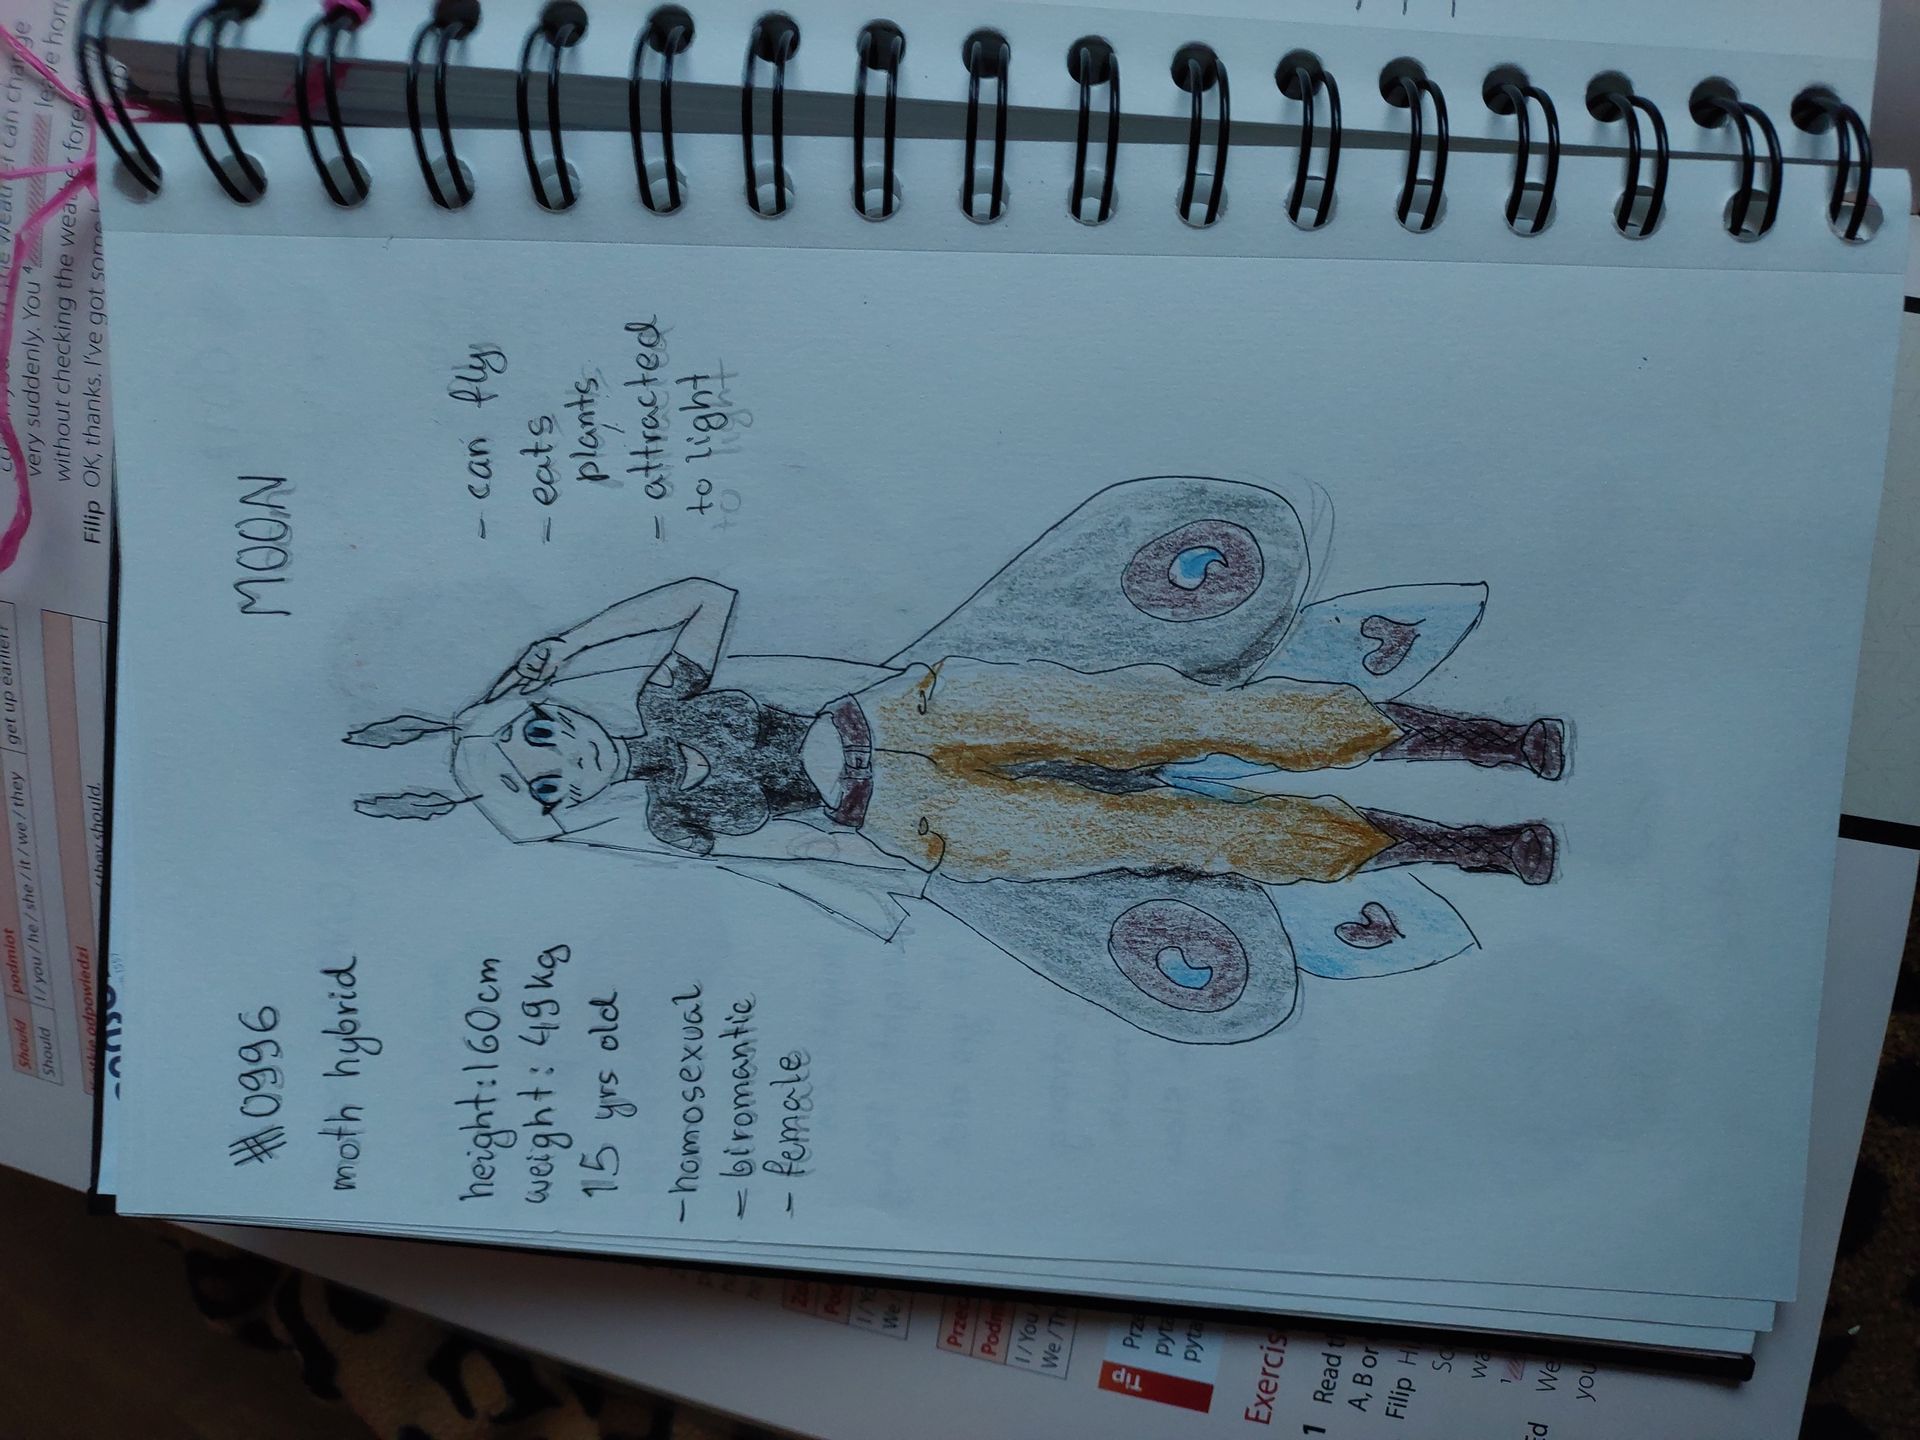 #0996
MOON
moth hybrid
height:160cm
weight: 49kg
15 yrs old
-homosexual
=biromantic
-female
- can fly
= eats
plants
= attracted
to light
very suddenly. You 4
without checking the weather fore
Filip OK, thanks. I've got some
get up earlier?
Should podmiot
Should I / you / he / she / it / we / they
they should.
Exercis
1 Read t
A, B or
Filip Hi